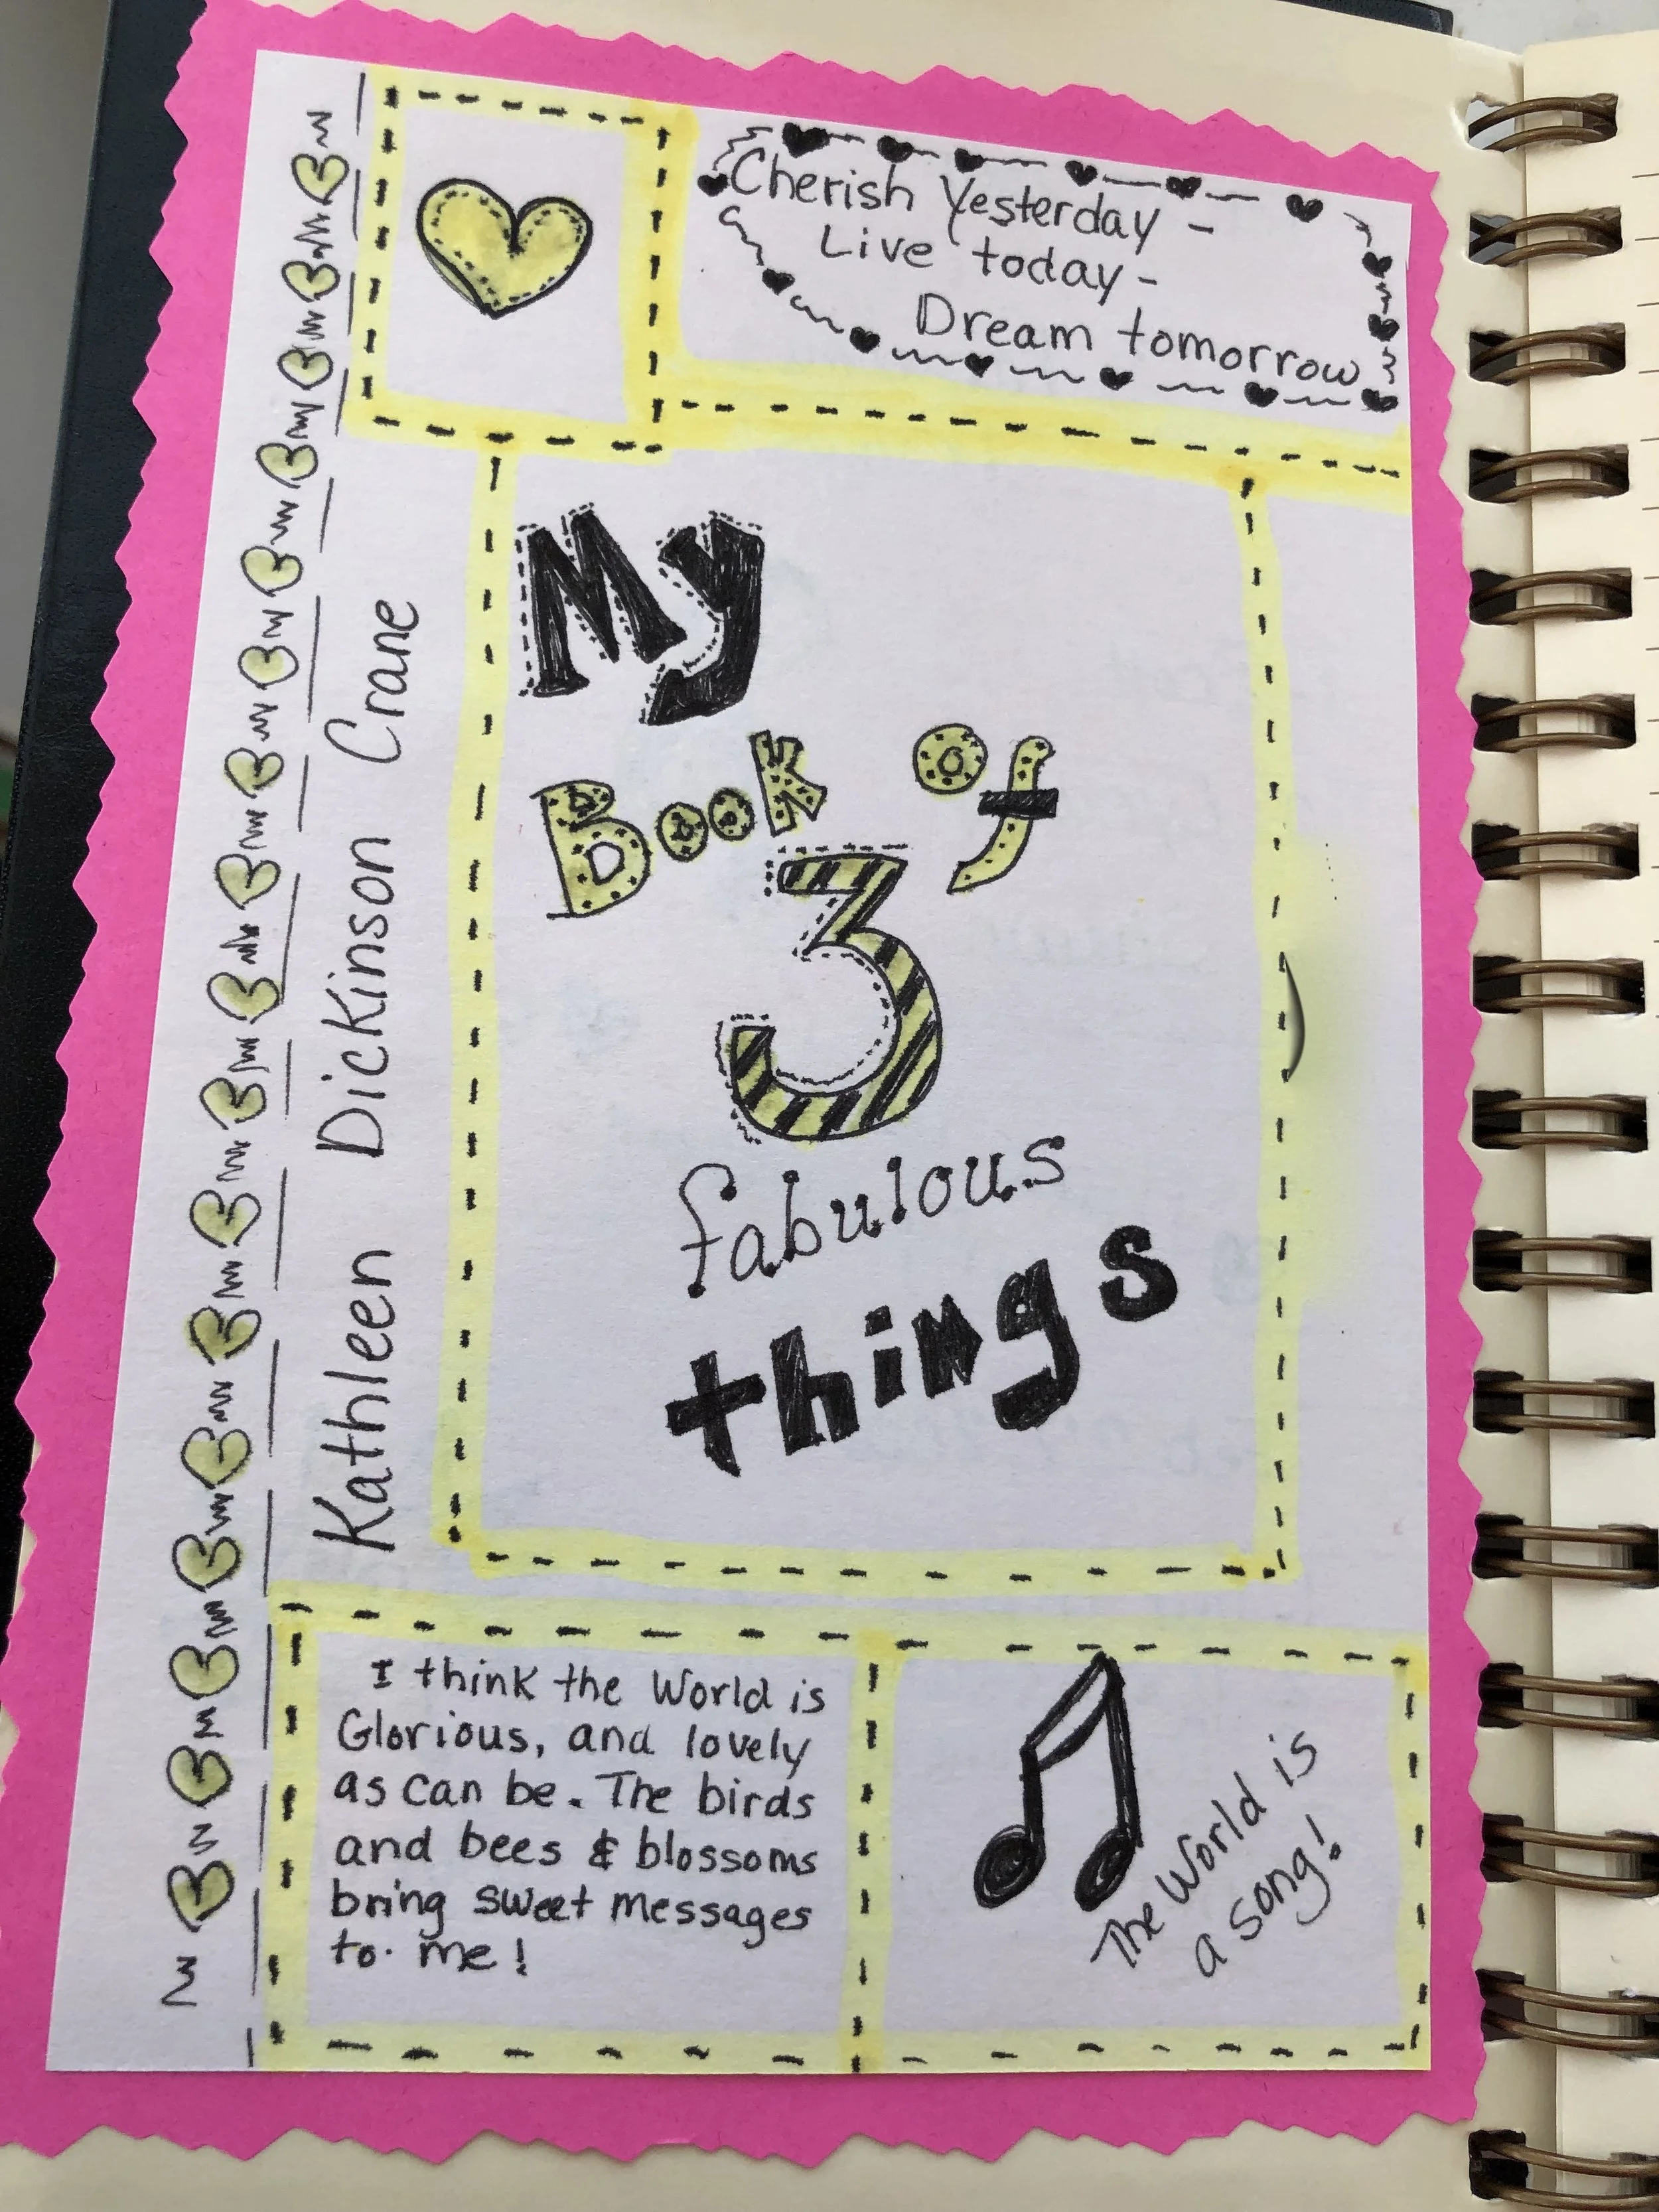 Cherish Yesterday -
Live today -
Dream tomorrow
Kathleen Dickinson Crane
My
Book of
3
fabulous
things
I think the World is
Glorious, and lovely
as can be. The birds
and bees & blossoms
bring sweet messages
to me!
The World is
a song!